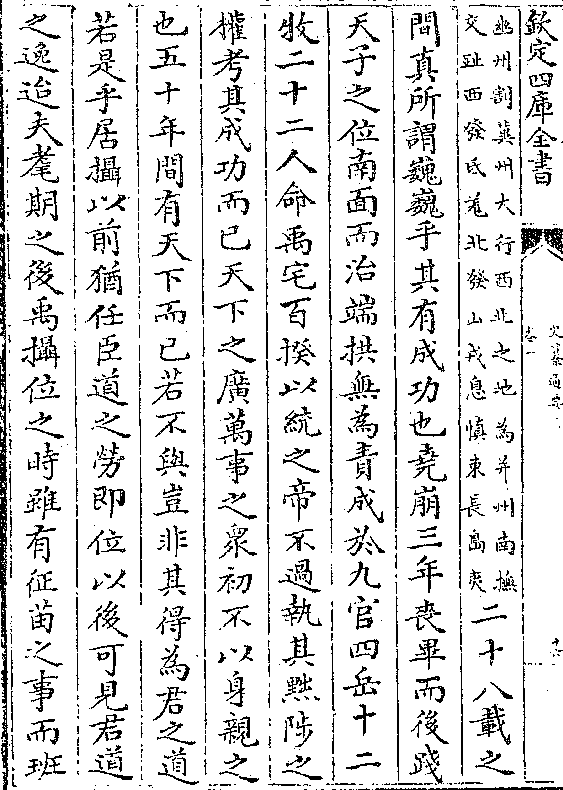 欽定四庫全書
史纂通要
卷一
幽州割冀州大行西北之地為并州南撫
交趾西發氐羌北發山戎息慎東長島夷
二十八載之
間真所謂巍巍乎其有成功也堯崩三年喪畢而後踐
天子之位南面而治端拱無為責成於九官四岳十二
牧二十二人命禹宅百揆以統之帝不過執其黜陟之
權考其成功而已天下之廣萬事之衆初不以身親之
也五十年間有天下而已若不與豈非其得為君之道
若是乎居攝以前猶任臣道之勞即位以後可見君道
之逸迨夫耄期之後禹攝位之時雖有征苗之事而班